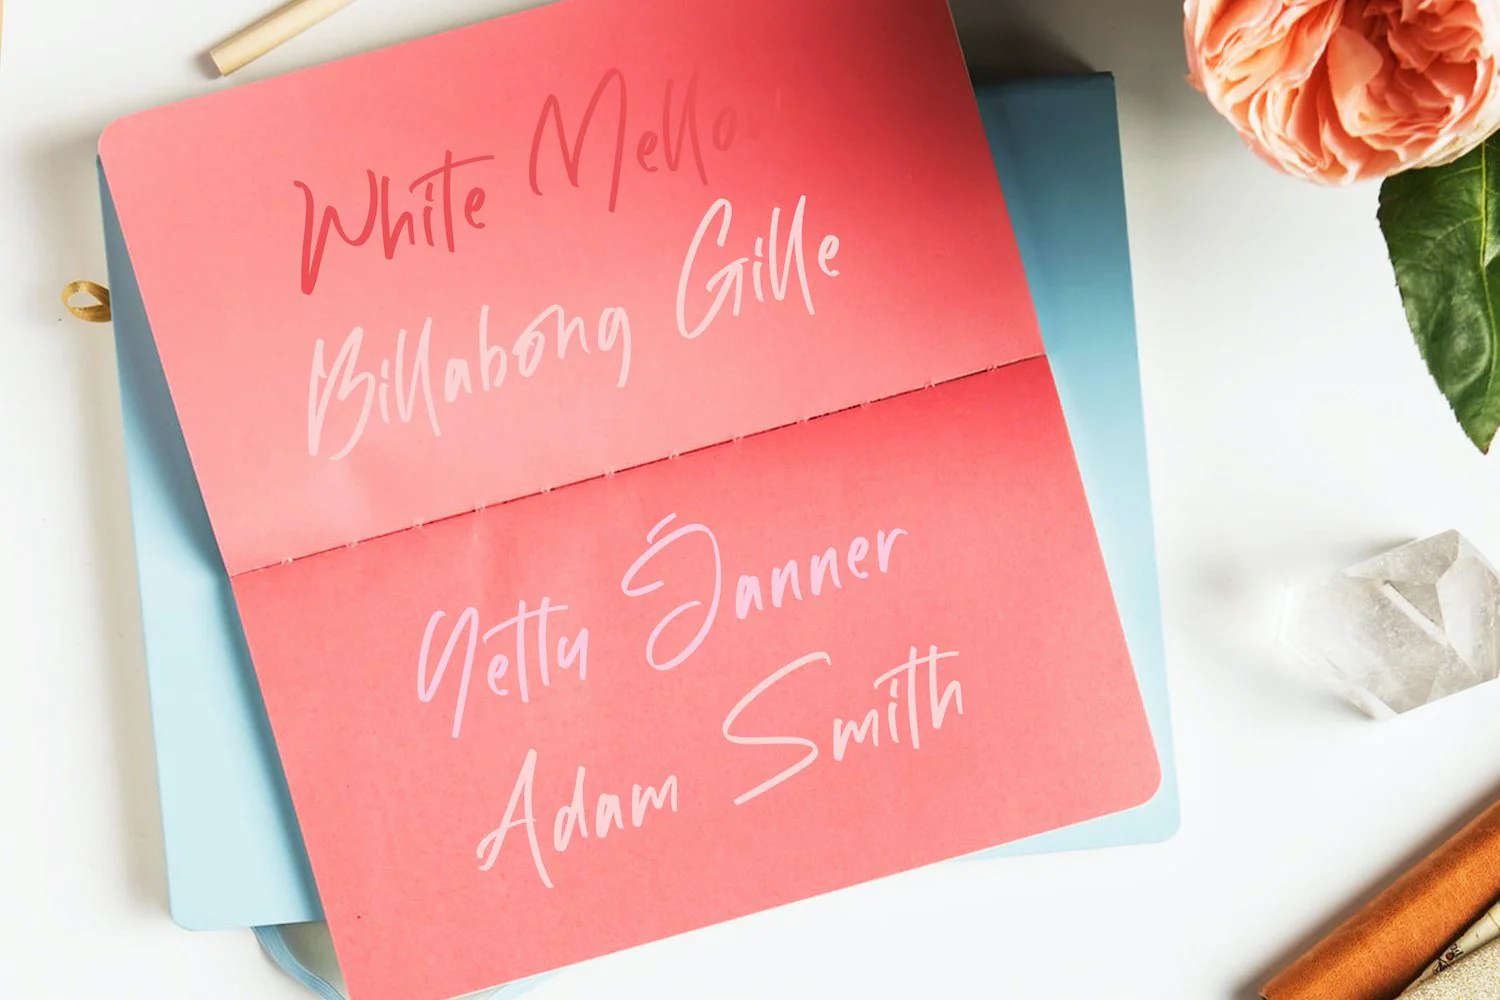 White Mellow
Billabong Gille
Yetty Janner
Adam Smith